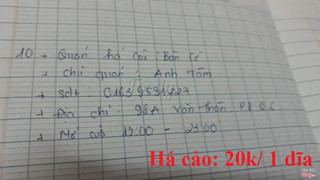 10 + Quán há cảo : Bến Cá
+ Chủ quán : Anh Tâm
+ sđt : 01639531227
+ Địa chỉ : 98A Văn Thân P8 Q6
+ Mở cửa 15:00 - 23:00
Há cảo: 20k/ 1 dĩa